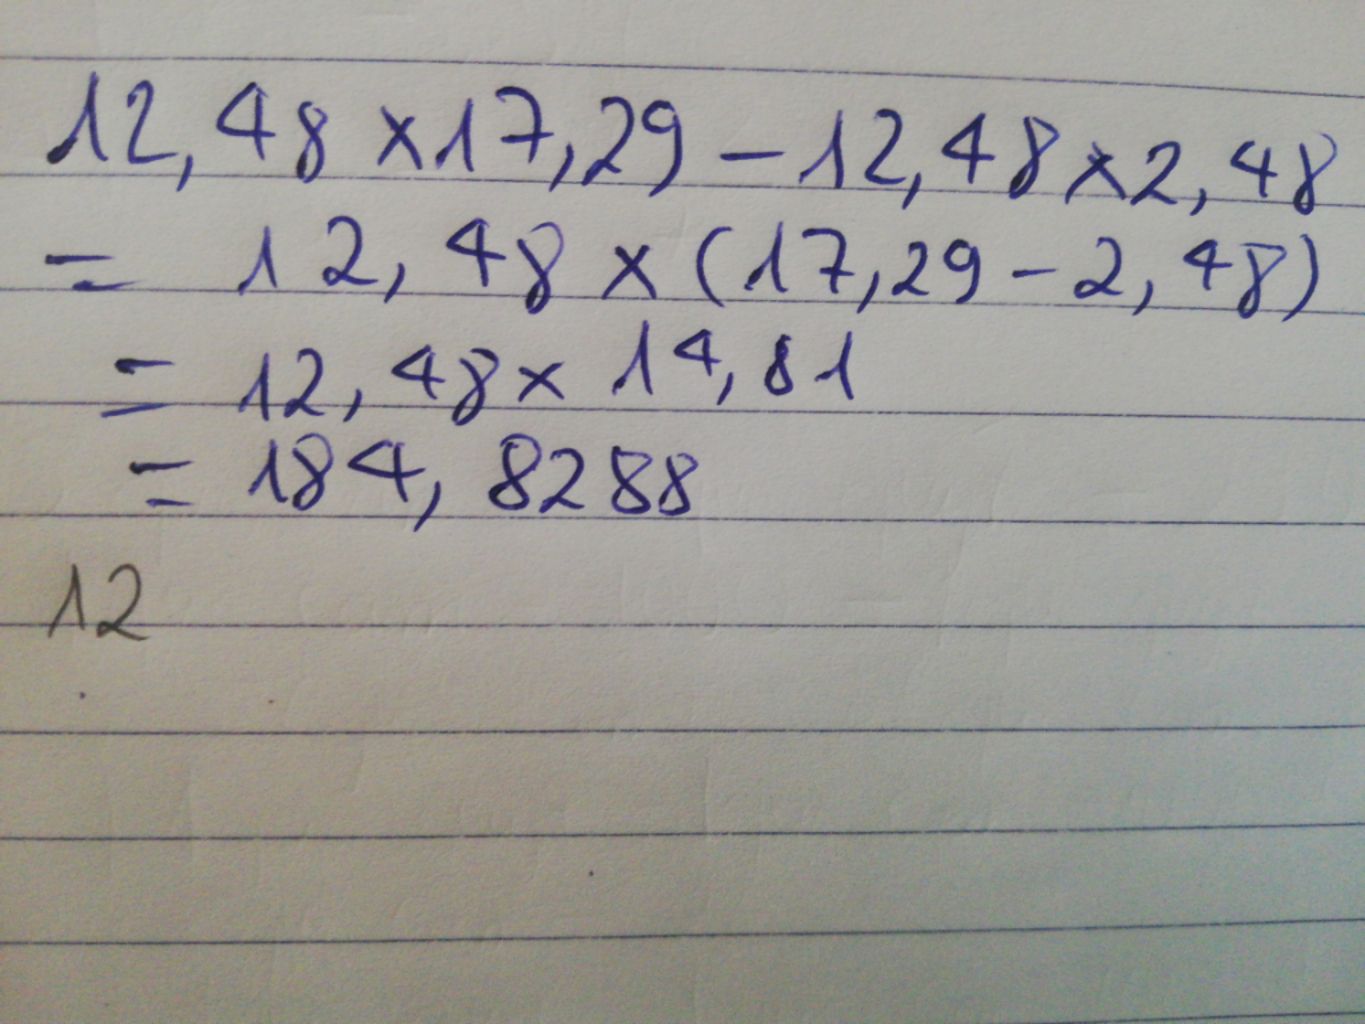 12,48 × 17,29 – 12,48 × 2,48
= 12,48 × (17,29 – 2,48)
= 12,48 × 14,81
= 184,8288
12